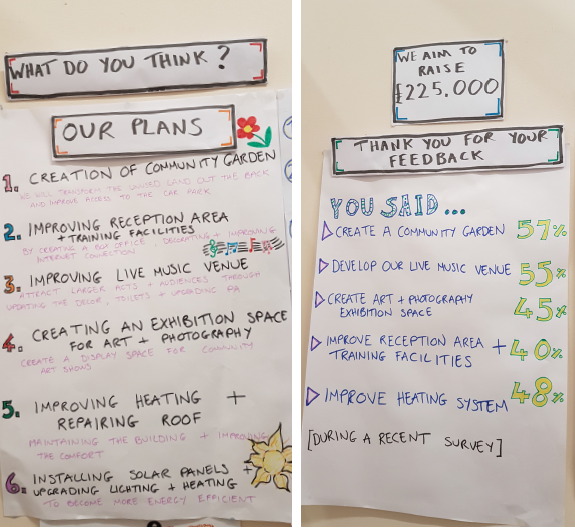 WHAT DO YOU THINK?
OUR PLANS
1. CREATION OF COMMUNITY GARDEN
WE WILL TRANSFORM THE UNUSED LAND OUT THE BACK
AND IMPROVE ACCESS TO THE CAR PARK
2. IMPROVING RECEPTION AREA
+ TRAINING FACILITIES
BY CREATING A BOX OFFICE, DECORATING + IMPROVING
INTERNET CONNECTION
3. IMPROVING LIVE MUSIC VENUE
ATTRACT LARGER ACTS + AUDIENCES THROUGH
UPDATING THE DECOR, TOILETS + UPGRADING PA
4. CREATING AN EXHIBITION SPACE
FOR ART + PHOTOGRAPHY
CREATE A DISPLAY SPACE FOR COMMUNITY
ART SHOWS
5. IMPROVING HEATING +
REPAIRING ROOF
MAINTAINING THE BUILDING + IMPROVING
THE COMFORT
6. INSTALLING SOLAR PANELS +
UPGRADING LIGHTING + HEATING
TO BECOME MORE ENERGY EFFICIENT
WE AIM TO
RAISE
£225.000
THANK YOU FOR YOUR
FEEDBACK
YOU SAID...
CREATE A COMMUNITY GARDEN 57%
DEVELOP OUR LIVE MUSIC VENUE 55%
CREATE ART + PHOTOGRAPHY
EXHIBITION SPACE 45%
IMPROVE RECEPTION AREA +
TRAINING FACILITIES 40%
IMPROVE HEATING SYSTEM 48%
[DURING A RECENT SURVEY]